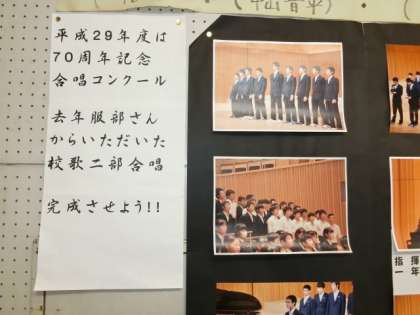 平成29年度は
70周年記念
合唱コンクール
去年服部さん
からいただいた
校歌二部合唱
完成させよう!!
指揮
一年